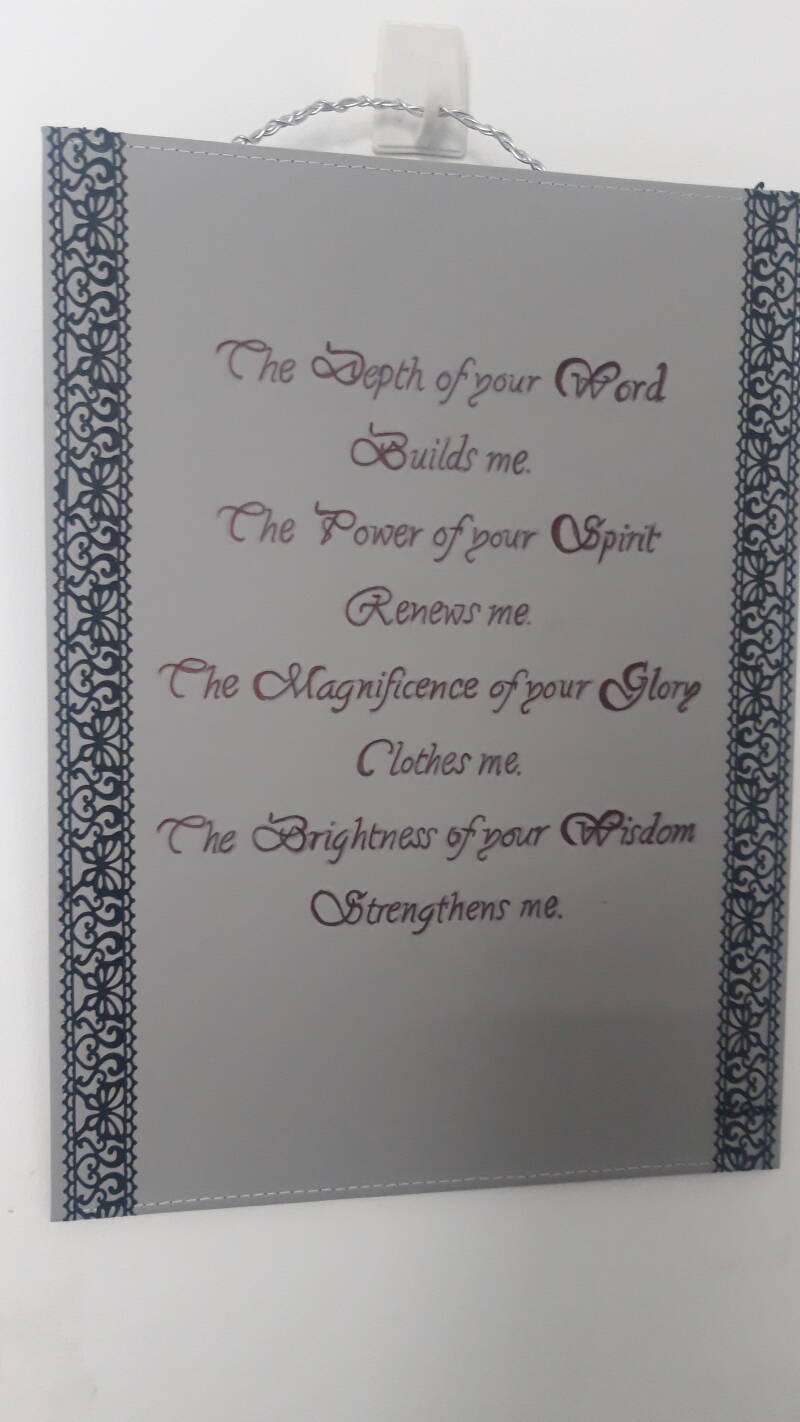 The Depth of your Word
Builds me.
The Power of your Spirit
Renews me.
The Magnificence of your Glory
Clothes me.
The Brightness of your Wisdom
Strengthens me.